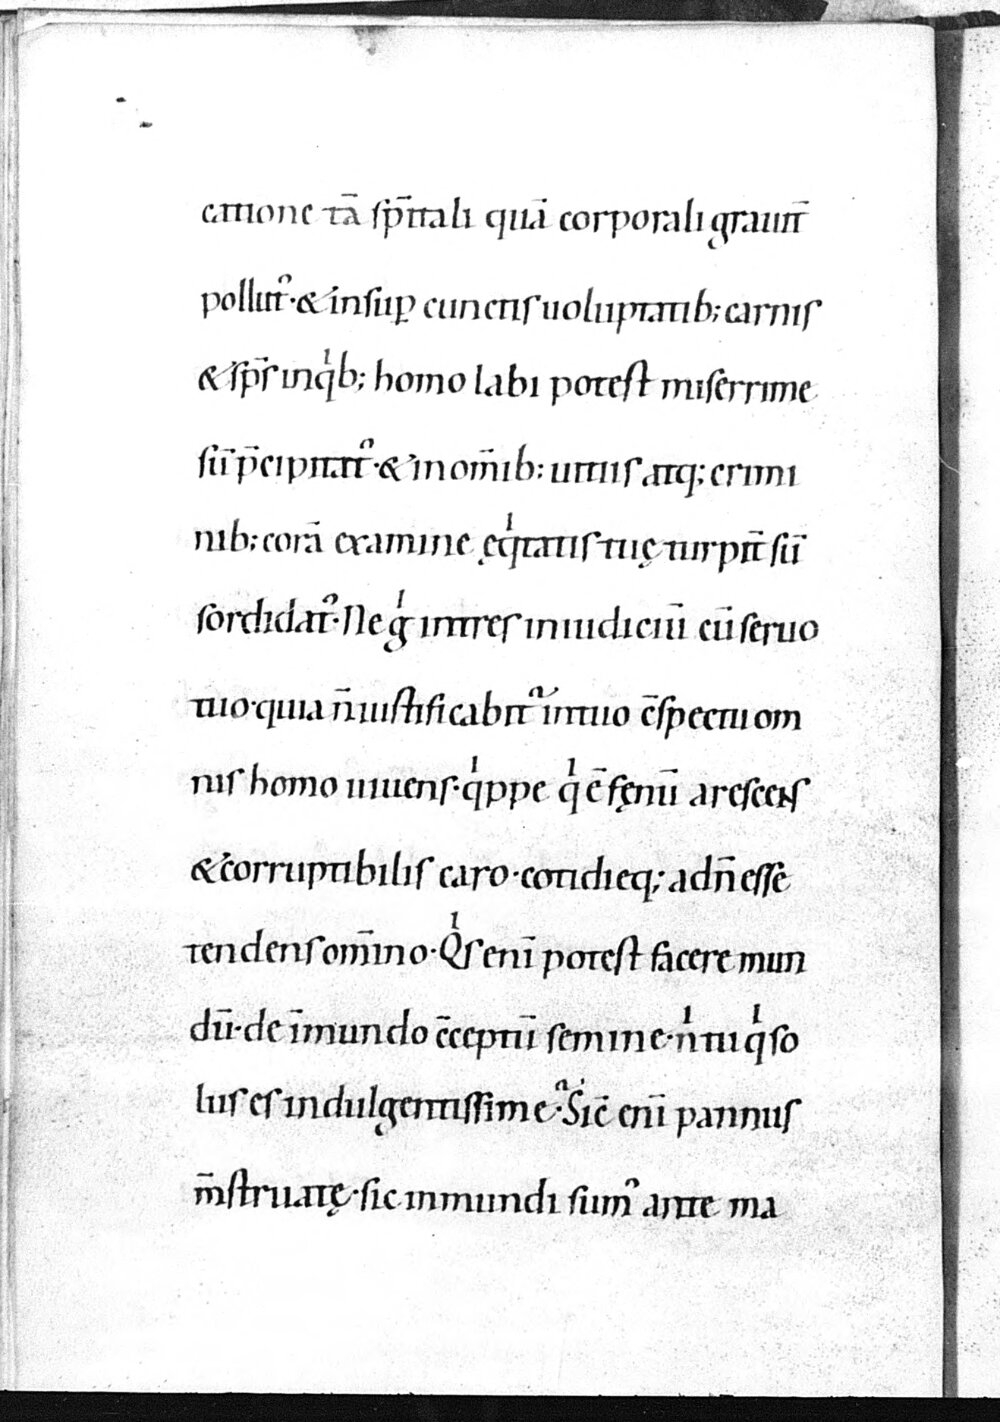 catione tā sp̄itali quā corporali grauit̄
pollut᷒·&insup̱ cunctis uoluptatib; carnis
&sp̄s inqͥb; homo labi potest miserrime
sū p̄cipitat᷒·&inom̄ib; uitiis atq; crimi
nib; corā examine ęqͥtatis tuę turpit̄ sū
sordidat᷒· Ne gͥ intres iniudiciū cū seruo
tuo·quia n̄ iustificabit᷒ intuo c̄spectu om
nis homo uiuens·qͥppe qͥ ē fęnū arescens
&corruptibilis caro·cotidieq; adn̄esse
tendens om̄ino·Qͥs enī potest facere mun
dū·de īmundo c̄ceptū semine·nͥ tu qͥ so
lus es indulgentissime·Sic̄ enī pannus
m̄struatę·sic inmundi sum᷒ ante ma